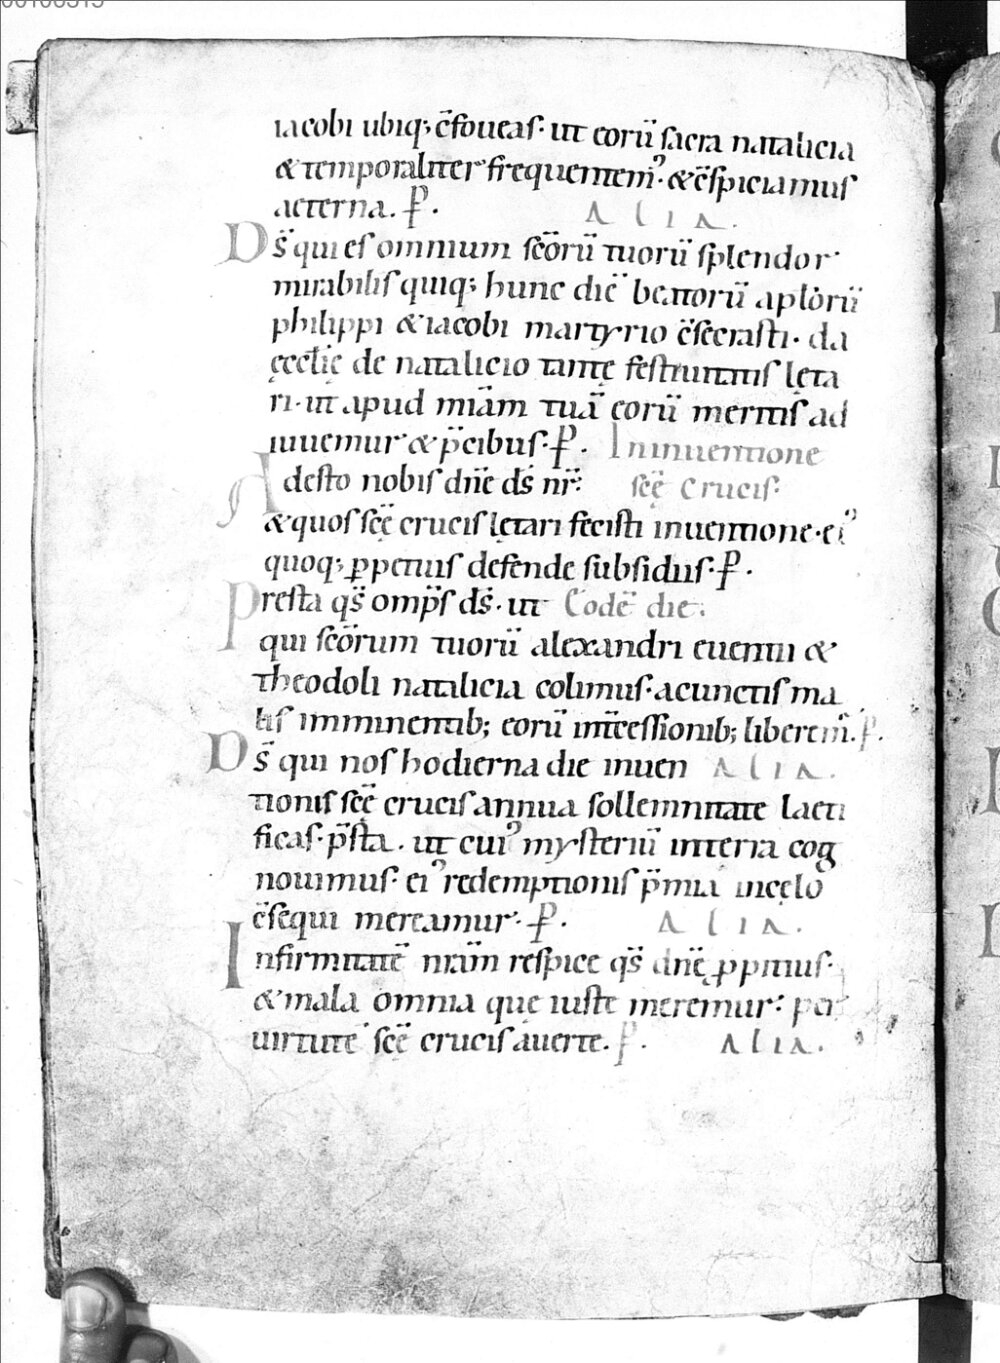 iacobi ubiq; c̄foueas· ut eorū sacra natalicia
& temporaliter frequentem᷒· & c̄spiciamus
aeterna. P̄. ALIA.
Ds̄ qui es omnium sc̄orū tuorū splendor
mirabilis quiq; hunc diē beatorū aplorū
philippi & iacobi martyrio c̄secrasti· da
ęccl̄ię de natalicio tantę festiuitatis lęta
ri· ut apud miām tuā eorū meritis ad
iuuemur & p̄cibus· P̄. In inuentione
Adesto nobis dn̄e ds̄ nr̄: sc̄ę crucis·
& quos sc̄ę crucis lętari fecisti inuentione· ei᷒
quoq; ꝑpetuis defende subsidiis· P̄.
Presta qs̄ omp̄s ds̄· ut Eodē die.
qui sc̄orum tuorū alexandri euentii &
theodoli natalicia colimus· a cunctis ma
lis imminentib; eorū int̄cessionib; liberem᷒. P̄.
Ds̄ qui nos hodierna die inuen ALIA.
tionis sc̄ę crucis annua sollemnitate laeti
ficas· p̄sta· ut cui᷒ mysteriū in terra cog
nouimus· ei᷒ redemptionis p̄mia in cęlo
c̄sequi mereamur· P̄. ALIA.
Infirmitatē nrām respice qs̄ dn̄e ꝓpitius·
& mala omnia que iuste meremur: per
uirtutē sc̄ę crucis auerte. P̄. ALIA.